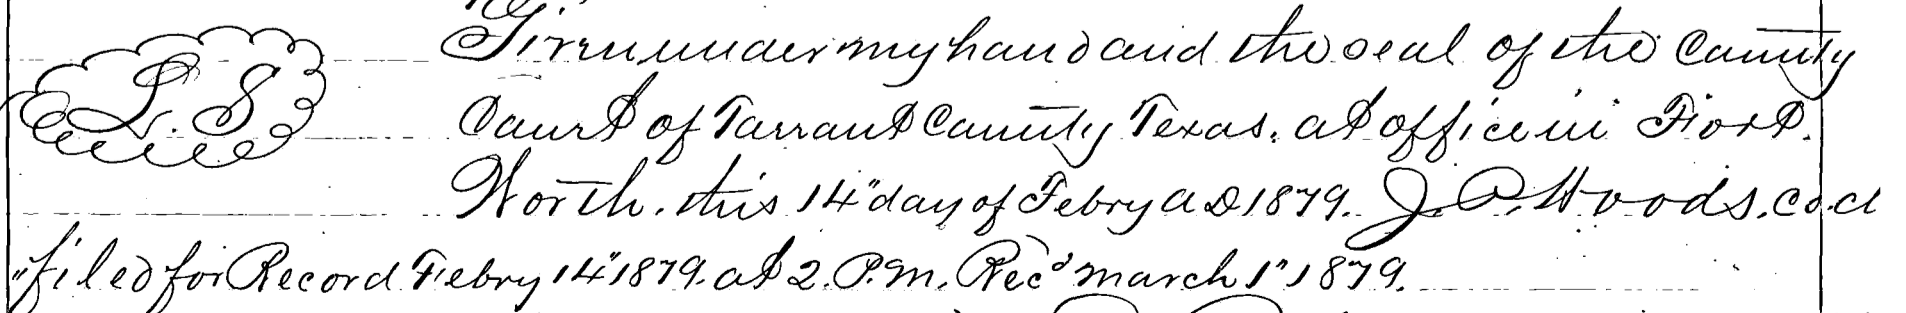 L. S
Given under my hand and the seal of the County
Court of Tarrant County Texas. at office in Fort.
Worth. this 14" day of Febry A D 1879. J. P. Woods. Co. cl
"filed for Record Febry 14" 1879. at 2. P.M. Rec'd March 1" 1879.